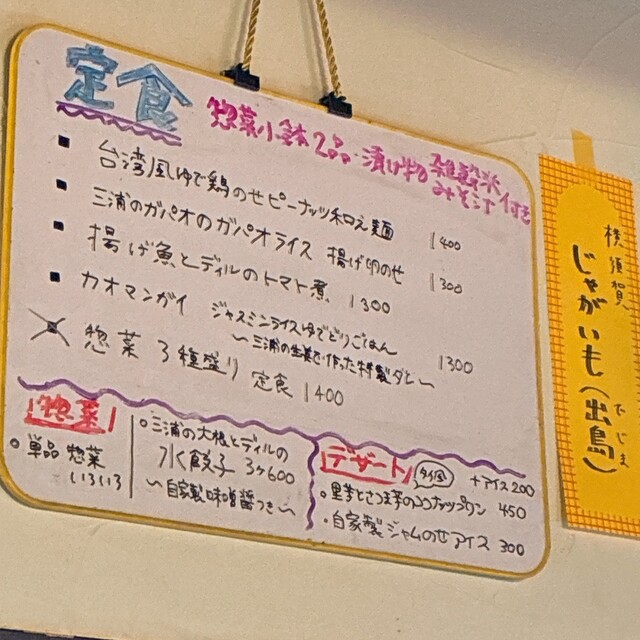 定食
惣菜小鉢2品・漬け物 雑穀米 みそ汁 付き
■ 台湾風ゆで鶏のせピーナッツ和え麺 1400
■ 三浦のガパオのガパオライス 揚げ卵のせ 1300
■ 揚げ魚とディルのトマト煮 1300
■ カオマンガイ ジャスミンライスゆでどりごはん 1300
～三浦の生姜で作った特製ダレ～
惣菜 3種盛り 定食 1400
惣菜
○単品 惣菜
いろいろ
○三浦の大根とディルの
水餃子 3ヶ600
～自家製味噌醤つき～
デザート タイ風 +アイス200
○里芋とさつま芋のココナッツワン 450
・自家製ジャムのせアイス 300
横須賀
じゃがいも(出島)
でじま